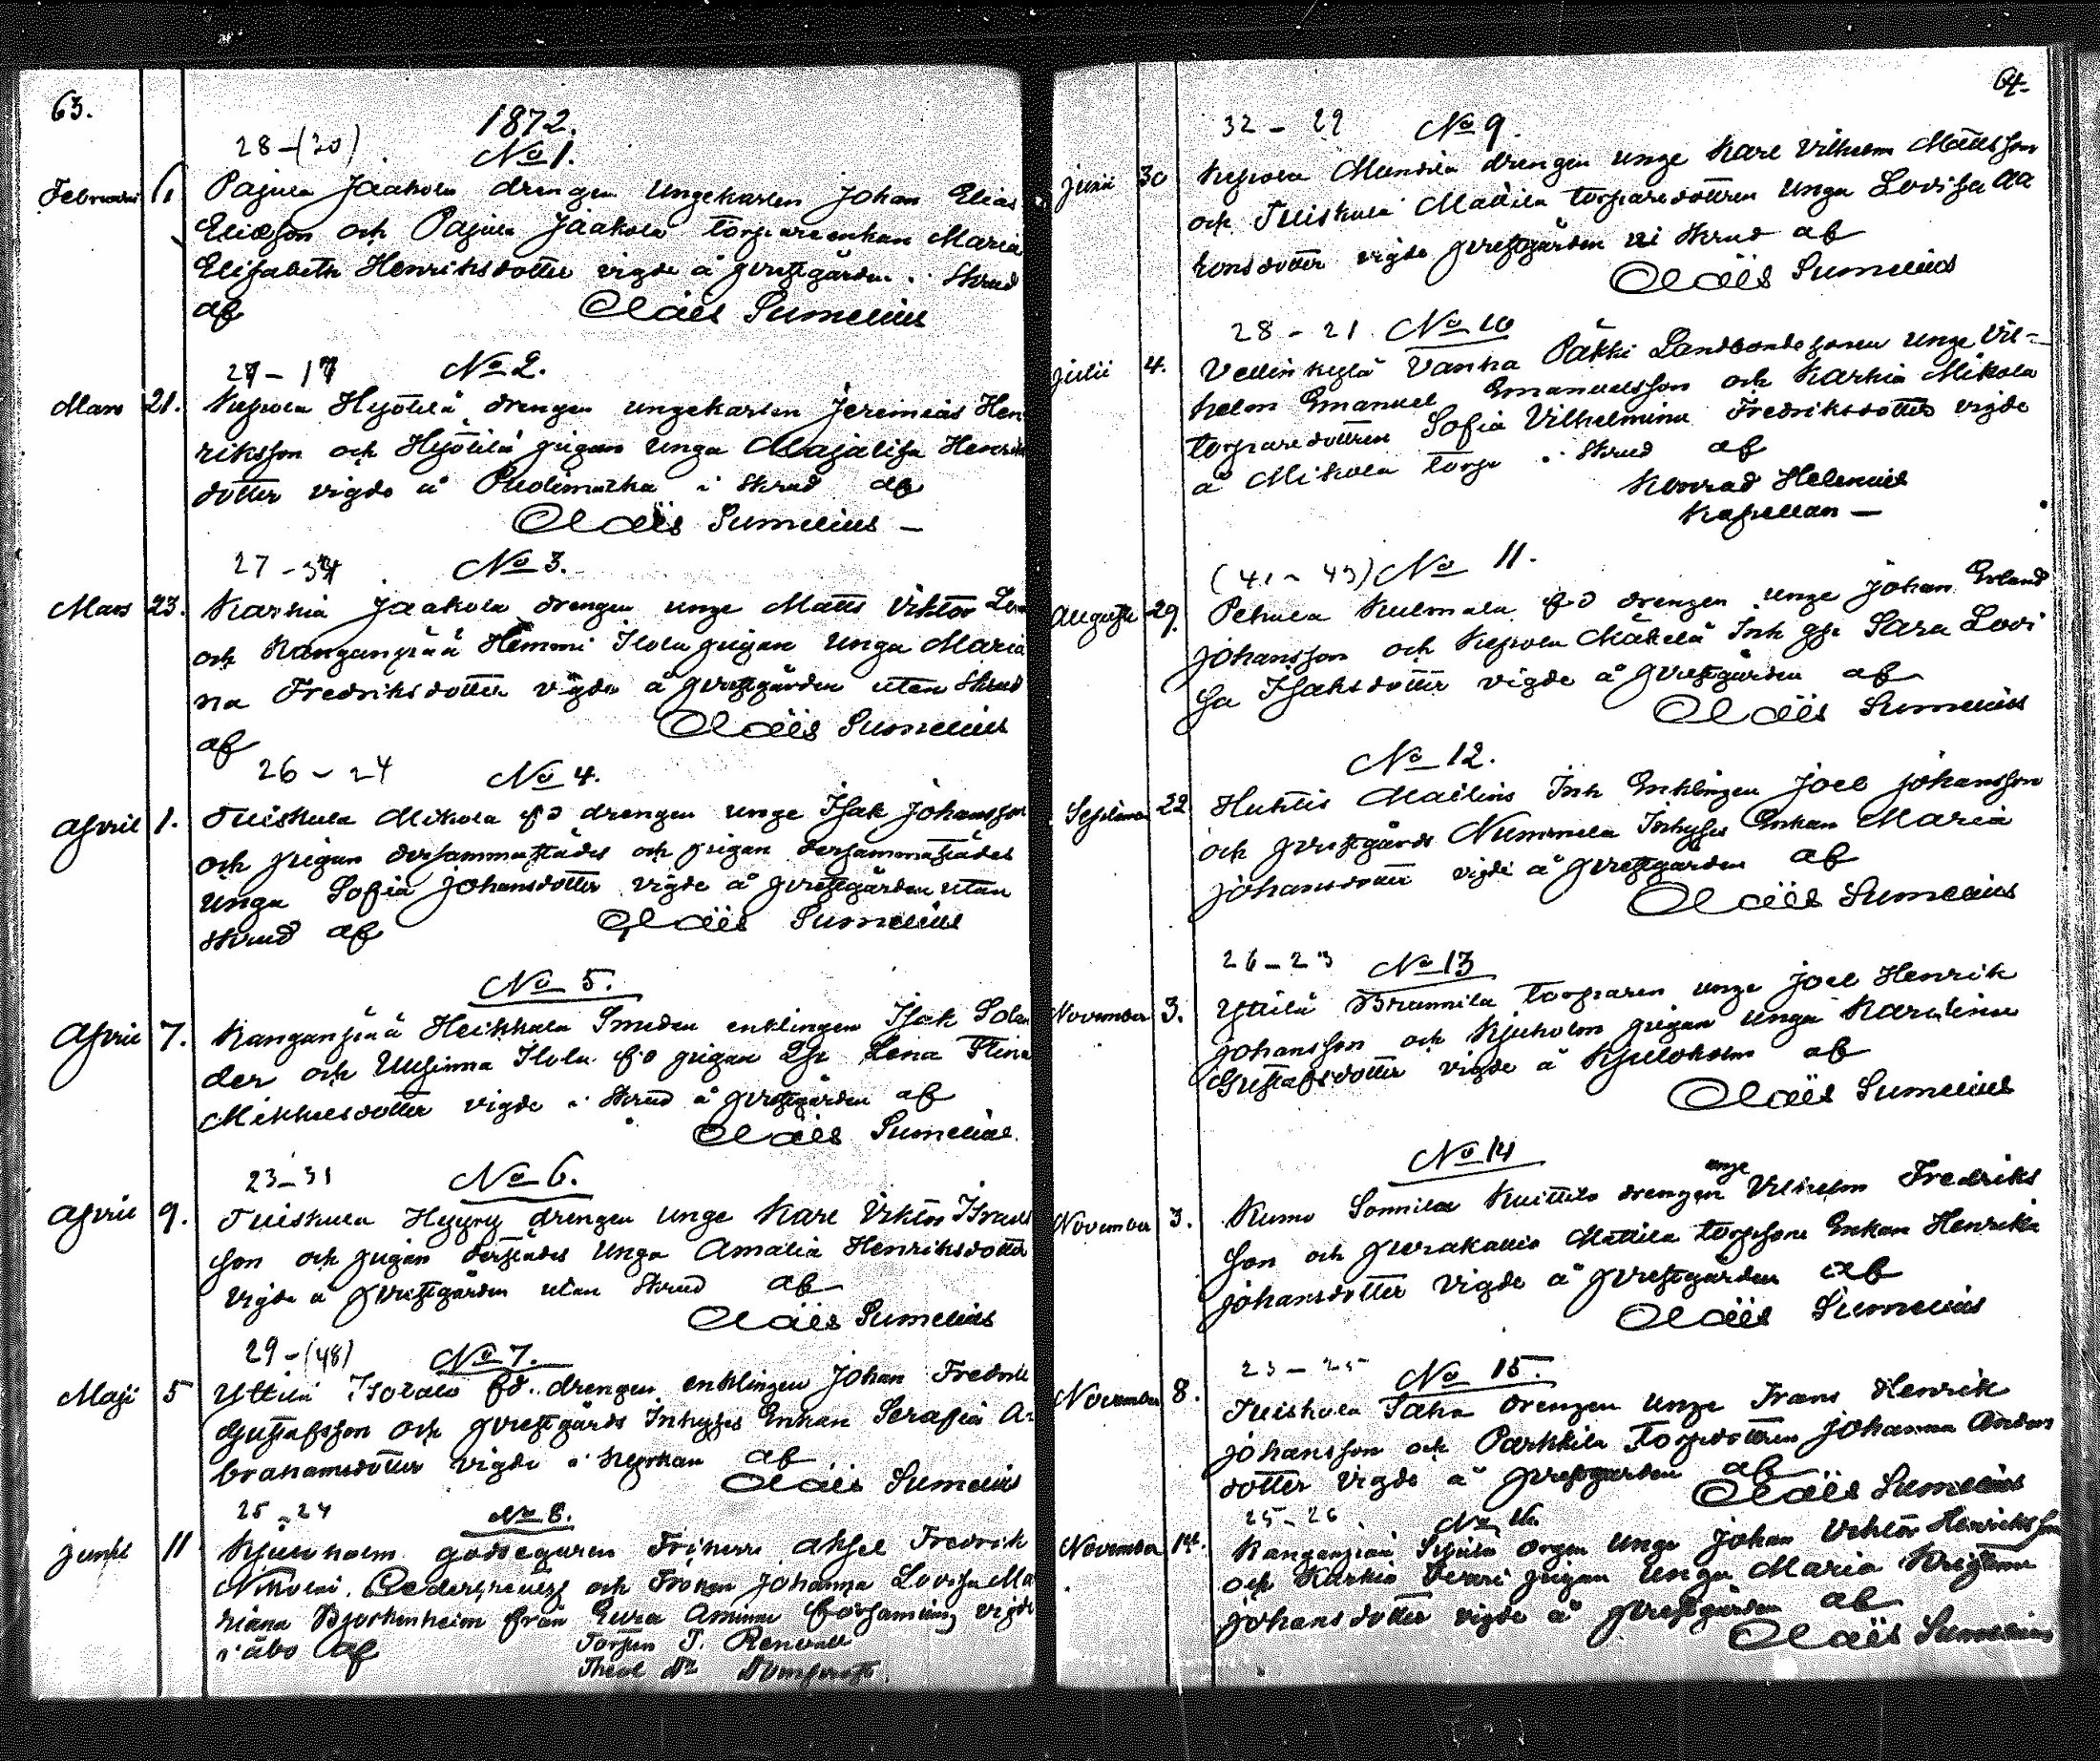 63.
1872.
28-(30)
No 1.
Februari 11 Pajula Jaakola drengen Ungekarlen Johan Elias
Eliasson och Pajula Jaakola torpareenkan Maria
Elisabeth Henriksdotter vigde å prestgården i Skrud
af Claës Sumelius
27-17 No 2.
Mars 21. Kepola Hyötilä drengen ungekarlen Jeremias Hen
riksson och Hyötilä pigan unga Majalisa Henrik
dotter vigde å Puolimatka i Skrud af
Claës Sumelius -
27-34 No 3.
Mars 23. Karhia Jaakola drengen unge Matts Viktor
och Kanganpää Hemmi Ilola pigan unga Maria
na Fredriksdotter vigde å prestgården utan Skrud
af Claës Sumelius
26-24 No 4.
April 1. Tuiskula Mikola fd drengen unge Isak Johansson
och pigan dersammastädes och pigan dersammastädes
unga Sofia Johansdotter vigde å prestgården utan
skrud af Claës Sumelius
No 5.
April 7. Kanganpää Heikkala Smeden enklingen Isak
der och Uusinna Ilola fd pigan Qp Lena Stina
Mikkelsdotter vigde i Skrud å prestgården af
Claës Sumelius.
23-31 No 6.
April 9. Tuiskula Hyyry drengen unge Karl Viktor Israels
son och pigan derstädes Unga Amalia Henriksdotter
vigde å prestgården utan Skrud af
Claës Sumelius
29-(48) No 7.
Maji 5 Yttilä Isotalo fd. drengen enklingen Johan Fredrik
Gustafsson och prestgårds Inhyses Enkan Serafia A-
brahamsdotter vigde i Kyrkan af
Claës Sumelius
25-24 No 8.
Junii 11 Kjuloholm godsegaren Friherre Aksel Fredrik
Nikolai Cedercreutz och Fröken Johanna Lovisa Ma
riana Björkenheim från Eura Åminne församling vigde
i Åbo af Torsten T. Renvall
Theol Dr Domprost.
64.
32-29 No 9.
Junii 30 Kepola Mandila drengen unge Karl Vilhelm Mattsson
och Tuiskula Mattila torparedottren unga Lovisa Aa
ronsdotter vigde prestgården i Skrud af
Claës Sumelius
28-21. No 10
Julii 4. Vellinkylä Vanha Päkki Landbondesonen unge Vil-
helm Emanuel Emanuelsson och Karhia Mikola
torparedottren Sofia Vilhelmina Fredriksdotter vigde
å Mikola torp i Skrud af
Konrad Helenius
Kapellan -
(41-43) No 11.
Augusti 29. Pehula Kulmala fd drengen unge Johan Erland
Johansson och Kepola Mäkelä Inh qp Sara Lovi
sa Isaksdotter vigde å prestgården af
Claës Sumelius
No 12.
September 22 Huhtis Mattlins Inh Enklingen Joel Johansson
och prestgårds Nummela Inhyses Enkan Maria
Johansdotter vigde å prestgården af
Claës Sumelius
26-23 No 13
November 3. Yttilä Brunnila torparen unge Joel Henrik
Johansson och Kjuloholm pigan unga Karolina
Gustafsdotter vigde å Kjuloholm af
Claës Sumelius
No 14
November 3. Kumo Sonnila Kuittilo drengen unge Vilhelm Fredriks
son och Purakallio Mattila torpsons Enkan Henrika
Johansdotter vigde å prestgården af
Claës Sumelius
23-25 No 15.
November 8. Tuiskula Saha drengen unge Frans Henrik
Johansson och Parkkila Torpdottren Johanna Anders
dotter vigde å prestgården af
Claës Sumelius
25-26 No 16.
November 14. Kanganpää Seppälä drgen unge Johan Viktor Henriksson
och Karhia Perri pigan unga Maria Kristina
Johansdotter vigde å prestgården af
Claës Sumelius